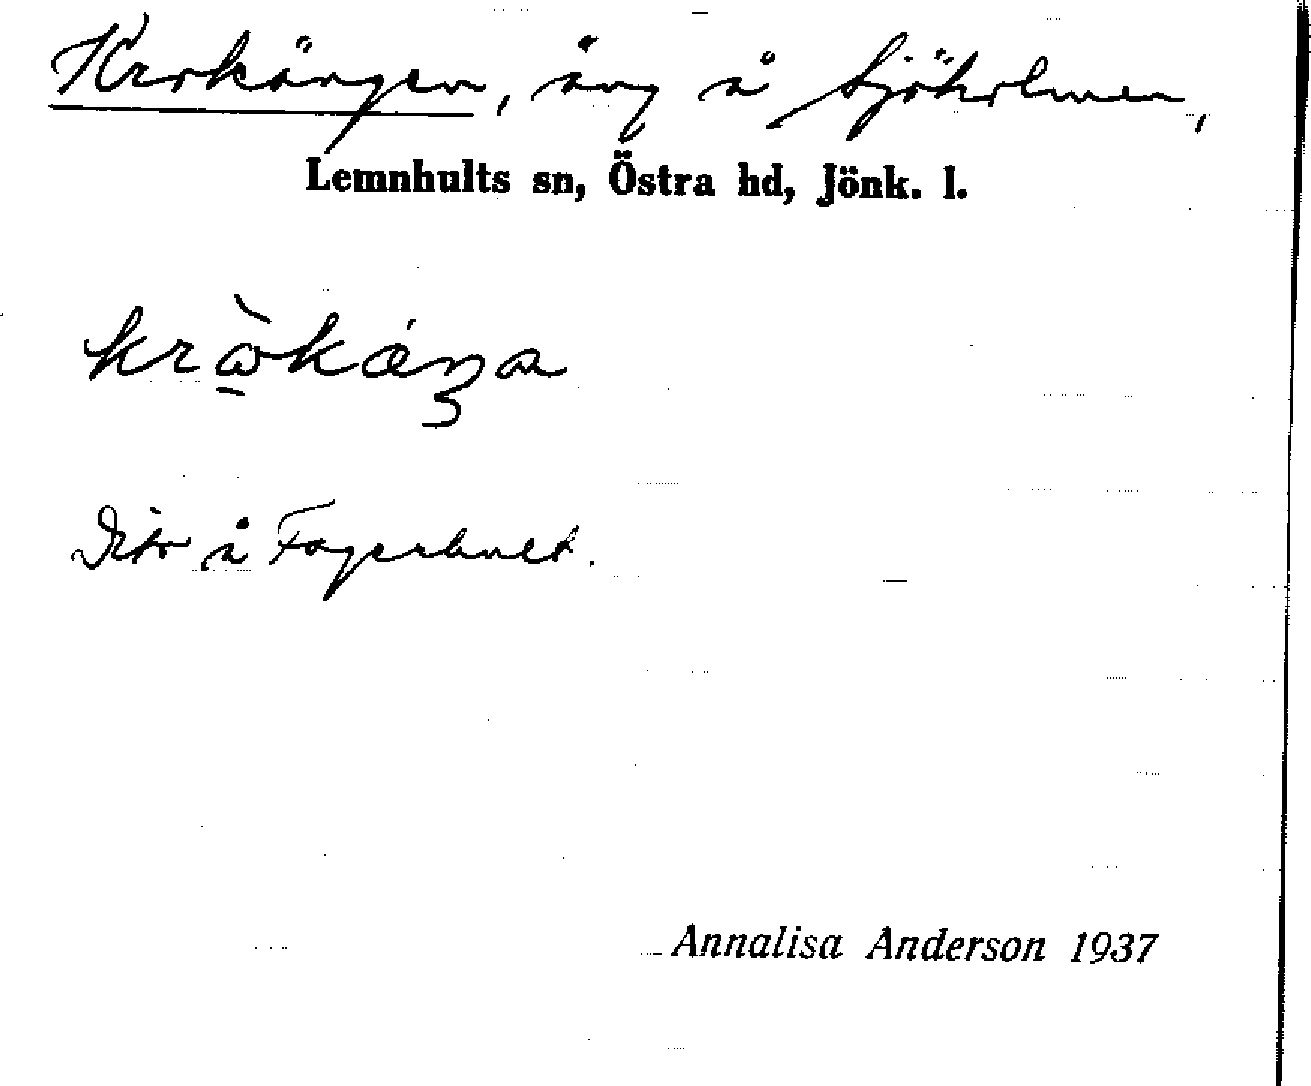 Krokängen, äng å Sjöholmen,
Lemnhults sn, Östra hd, Jönk. l.
Dito å Fagerhult.
Annalisa Anderson 1937